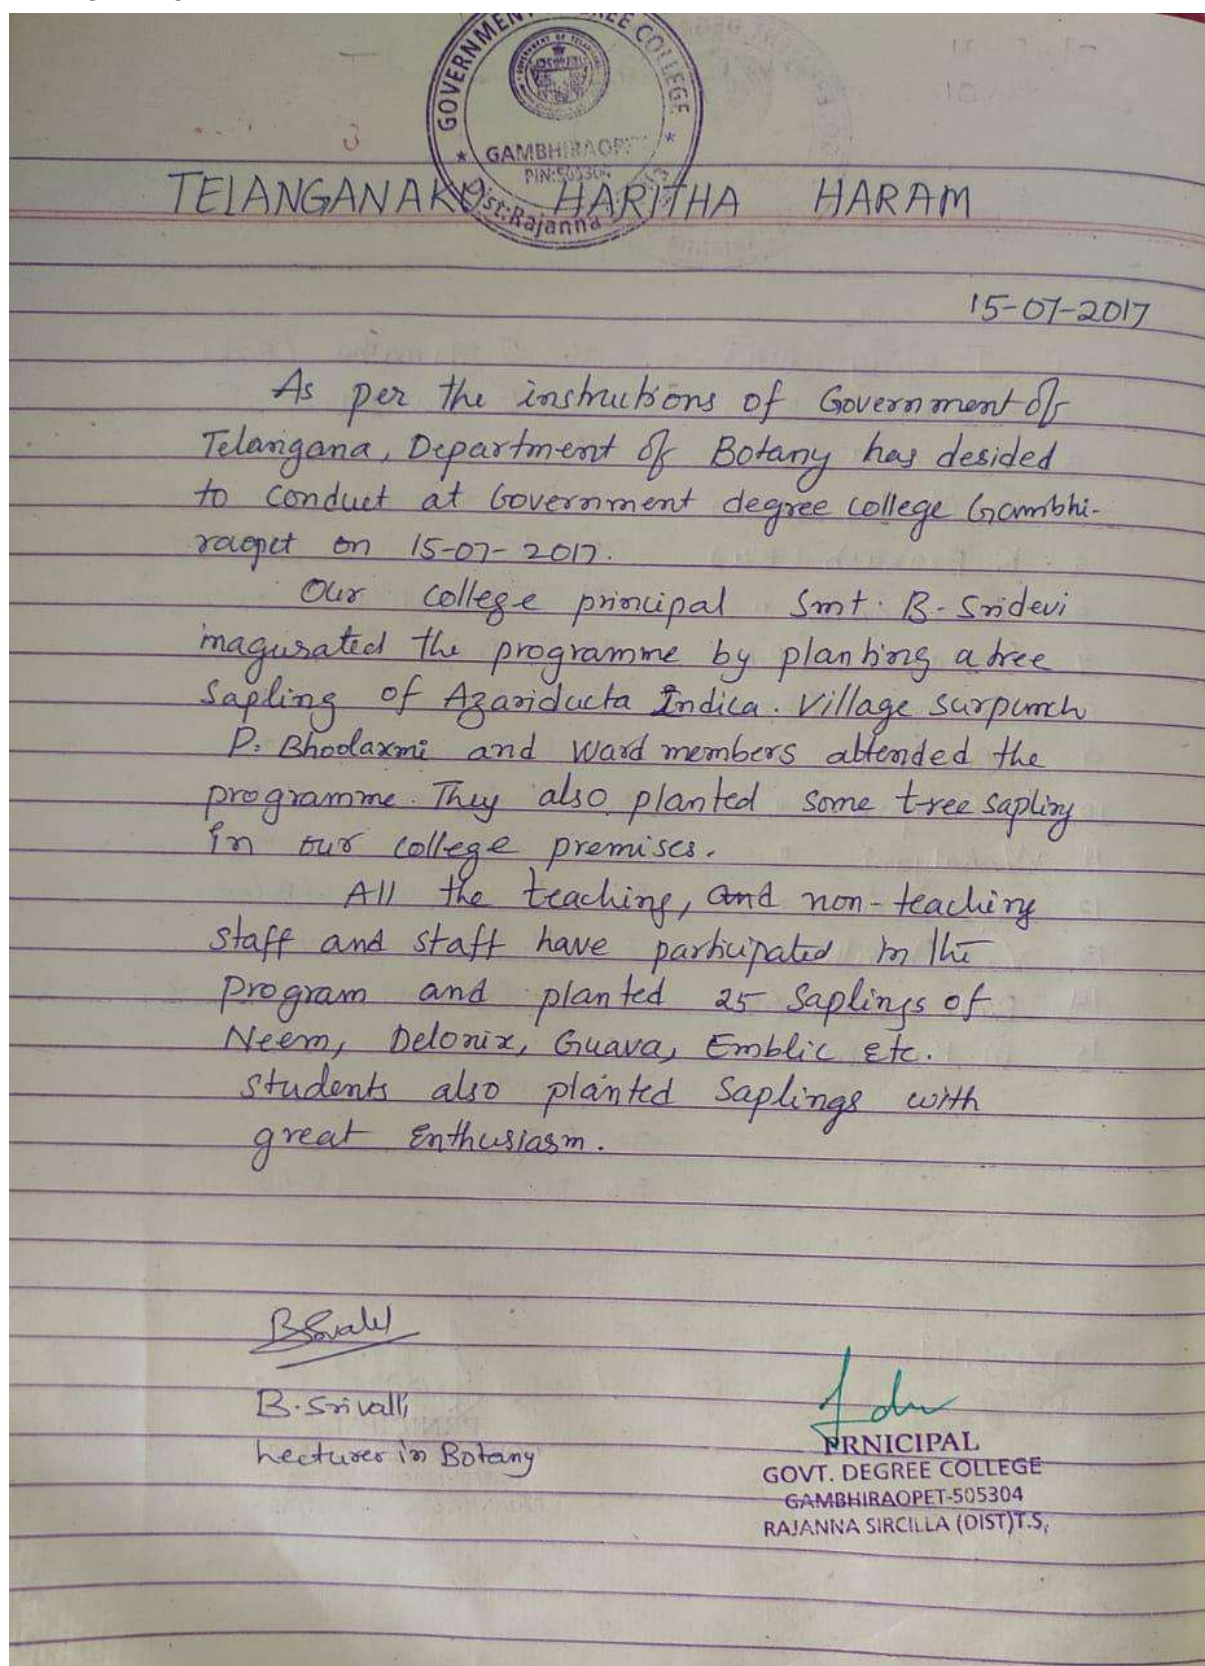 GOVERNMENT DEGREE COLLEGE
GAMBHIRAOPET
PIN:505304
Dist:Rajanna
TELANGANAKU HARITHA HARAM
15-07-2017
As per the instrutions of Government of
Telangana, Department of Botany has desided
to conduct at Government degree college Gambhi-
raopet on 15-07-2017.
Our college principal Smt. B. Sridevi
inagurated the programme by planting a tree
Sapling of Azariducta Indica. Village surpunch
P. Bhoolaxmi and ward members attended the
programme. They also planted some tree sapling
in our college premises.
All the teaching, and non-teaching
staff and staff have participated in the
program and planted 25 Saplings of
Neem, Delonix, Guava, Emblic etc.
students also planted Saplings with
great Enthusiasm.
B. Srivalli
Lecturer in Botany
PRNICIPAL
GOVT. DEGREE COLLEGE
GAMBHIRAOPET-505304
RAJANNA SIRCILLA (DIST)T.S,